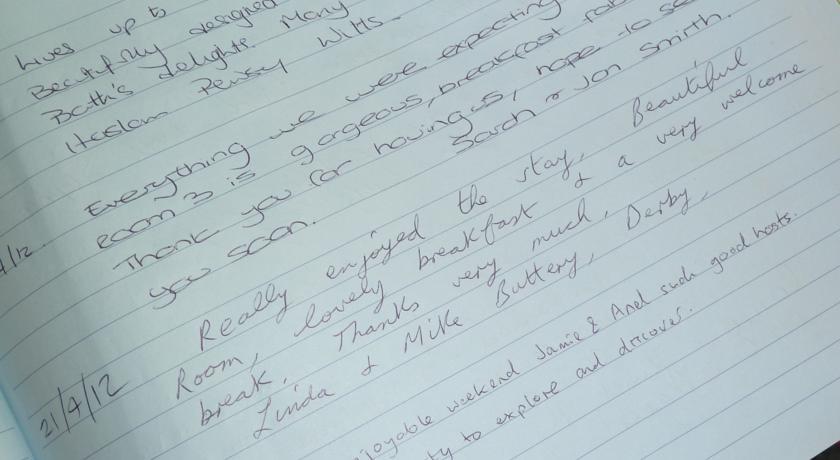 lives up to
Beautifully designed
Bath's delights. Many
Haslam Pewsey Wilts.
Everything we were expecting
room 3 is gorgeous, breakfast
Thank you for having us, hope to
you soon. Sarah & Jon Smirth.
/12.
Really enjoyed the stay, Beautiful
Room, lovely breakfast & a very welcome
break. Thanks very much,
21/4/12 Linda & Mike Buttery, Derby,
weekend Jamie & And such good hosts.
to explore and discover.